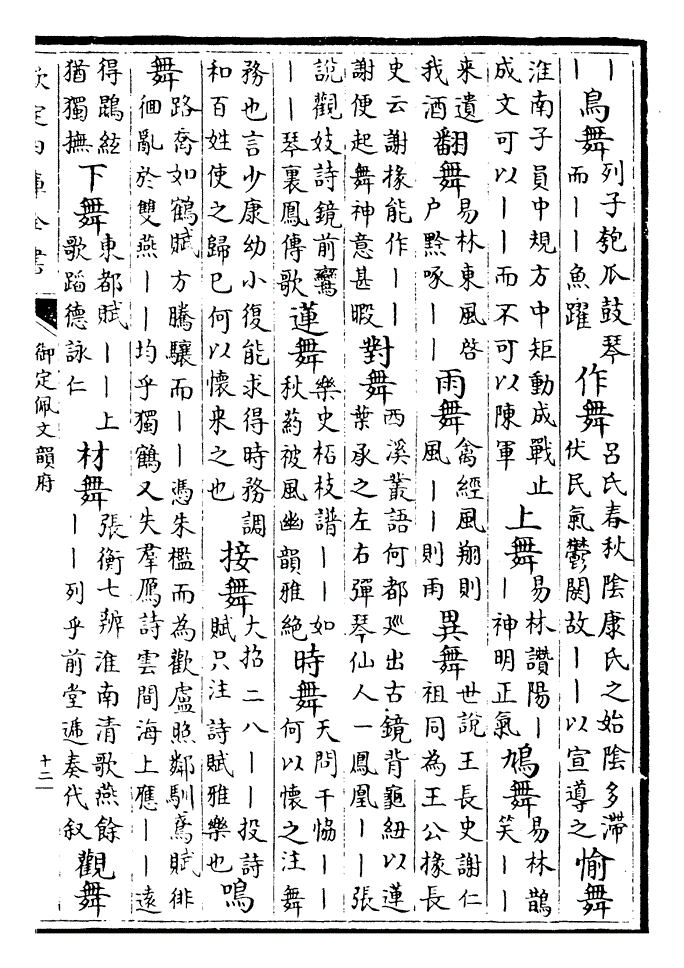 丨丨鳥舞列子匏瓜鼓琴而丨丨魚躍作舞呂氏春秋陰康氏之始陰多滯伏民氣鬱閼故丨丨以宣導之愉舞
淮南子員中規方中矩動成戰止成文可以丨丨而不可以陳軍上舞易林讚陽丨丨神明正氣鳩舞易林鵲笑丨丨
来遺我酒翻舞易林東風啓户黙啄丨丨雨舞禽經風翔則風丨丨則雨異舞世說王長史謝仁祖同為王公掾長
史云謝掾能作丨丨謝便起舞神意甚暇對舞西溪叢語何都廵出古鏡背龜紐以蓮葉承之左右彈琴仙人一鳳凰丨丨張
說觀妓詩鏡前鸞丨丨琴裏鳳傳歌蓮舞樂史柘枝譜丨丨如秋葯被風幽韻雅絶時舞天問干恊丨丨何以懷之注舞
務也言少康幼小復能求得時務調和百姓使之歸已何以懷来之也接舞大招二八丨丨投詩賦只注詩賦雅樂也鳴
舞路喬如鶴賦方騰驤而丨丨憑朱檻而為歡盧照鄰馴鳶賦俳徊亂於雙燕丨丨均乎獨鶴又失羣鴈詩雲間海上應丨丨逺
得鵾絃猶獨撫下舞東都賦丨丨上歌蹈德詠仁材舞張衡七辨淮南清歌燕餘丨丨列乎前堂遞奏代叙觀舞
欽定四庫全書
御定佩文韻府
十二